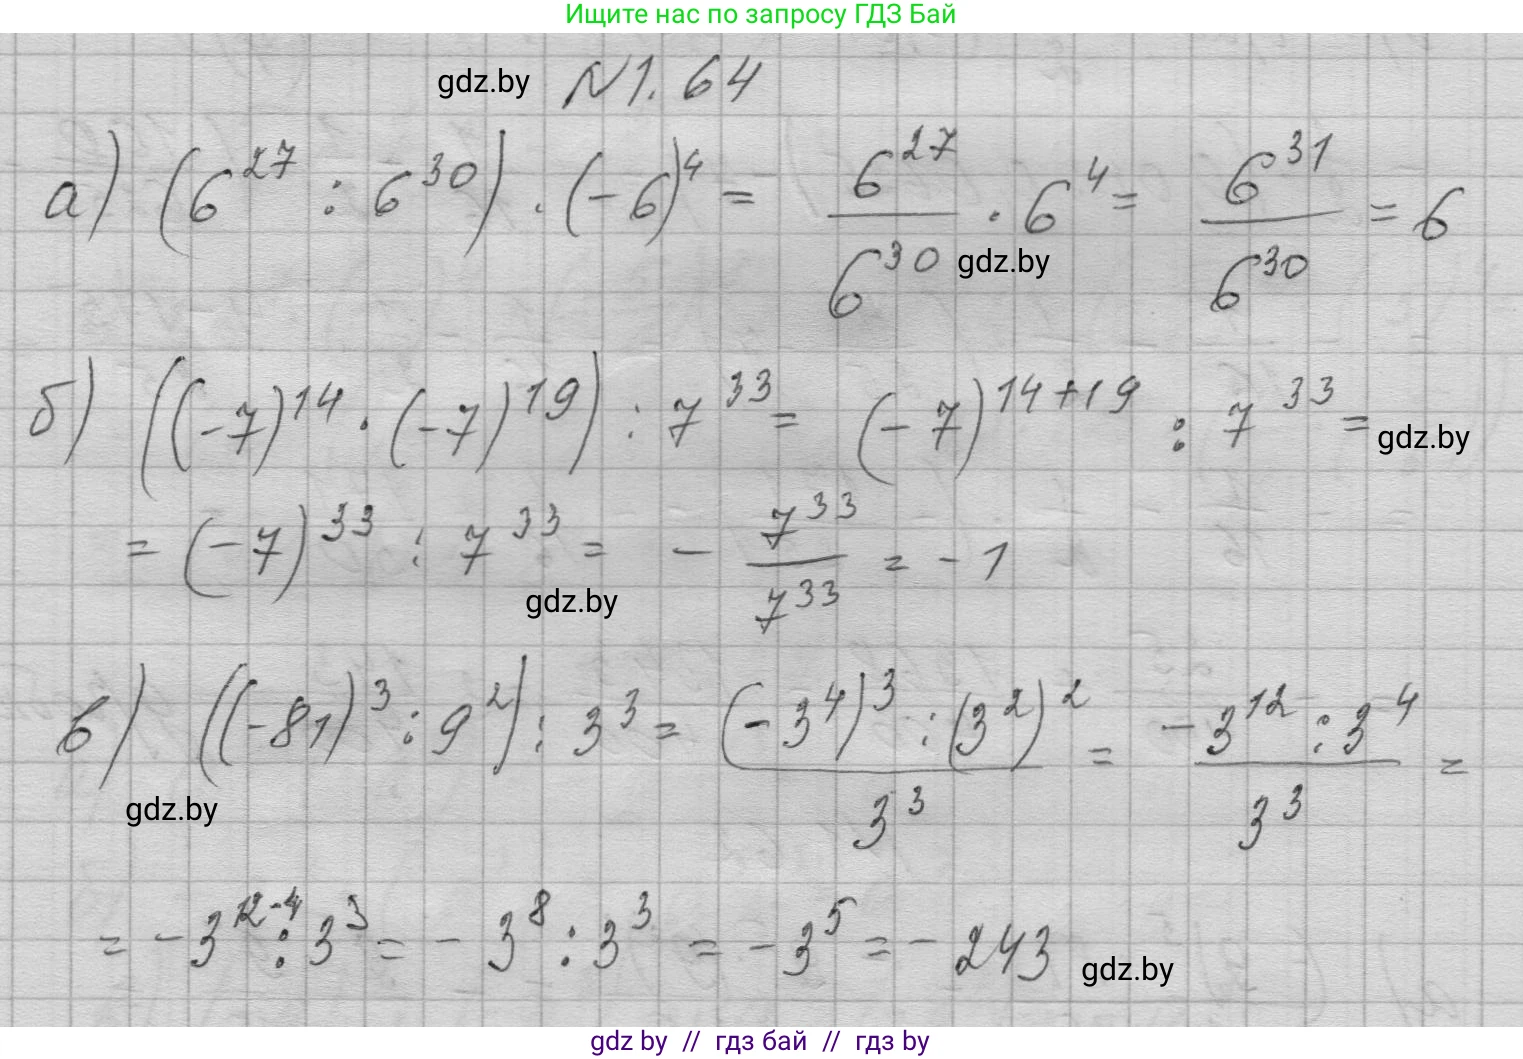 Ищите нас по запросу ГДЗ Бай
gdz.by
N 1.64
а) (6^27 : 6^30) · (-6)^4 = 6^27/6^30 · 6^4 = 6^31/6^30 = 6
gdz.by
б) ((-7)^14 · (-7)^19) : 7^33 = (-7)^14+19 : 7^33 =
gdz.by
= (-7)^33 : 7^33 = - 7^33/7^33 = -1
gdz.by
в) ((-81)^3 : 9^2) : 3^3 = (-3^4)^3 : (3^2)^2/3^3 = -3^12 : 3^4/3^3 =
gdz.by
= -3^12-4 : 3^3 = -3^8 : 3^3 = -3^5 = -243
gdz.by
gdz by // гдз бай // гдз by